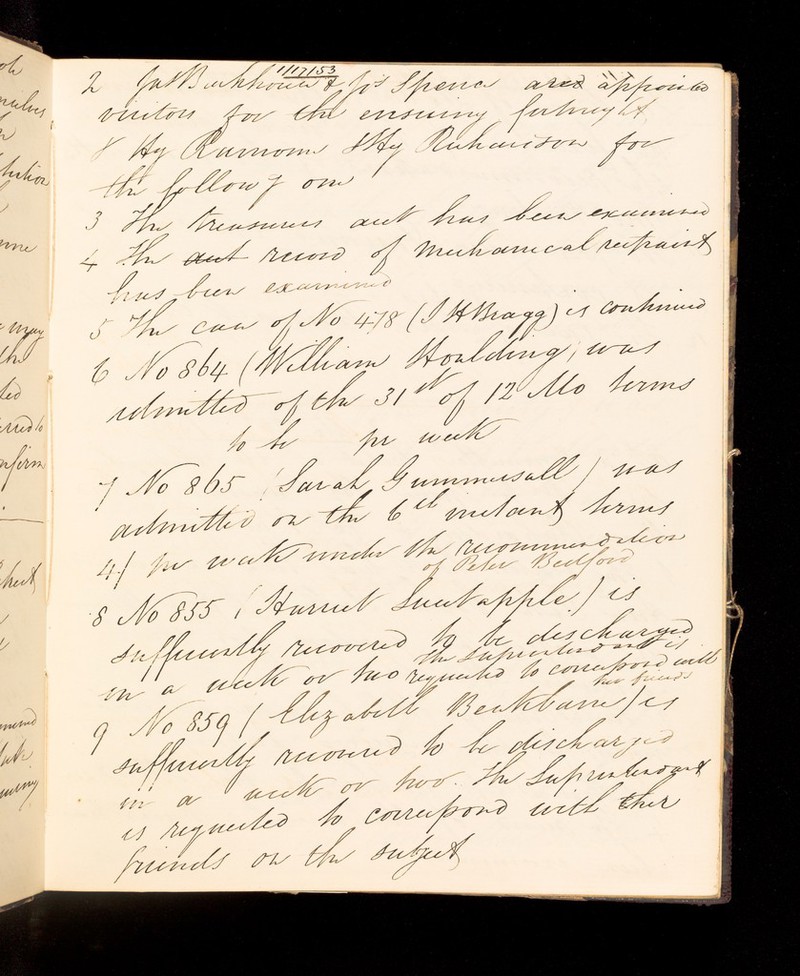 1/17/53
2 Jas Backhouse & Jos Spence are appointed
visitors for the ensuing fortnight
& Hy Ransome & Hy Richardson for
the follow'g one
3 The treasurers acct has been examined
4 The acct record of mechanical restraint
has been examined
5 The case of No 478 (J H Bragg) is continued
6 No 864 (William Houlding) was
admitted of the 31st of 12 Mo terms
to be pr week
7 No 865 (Sarah Gummersall) was
admitted on the 6th instant terms
4/ pr week under the recommendation
of Peter Bedford
8 No 855 (Harriet Sweetapple) is
sufficiently recovered to be discharged
in a week or two the superintendent is
requested to correspond with
her friends
9 No 859 (Elizabeth Beakbane) is
sufficiently recovered to be discharged
in a week or two. The Superintendant
is requested to correspond with her
friends on the subject
may
the